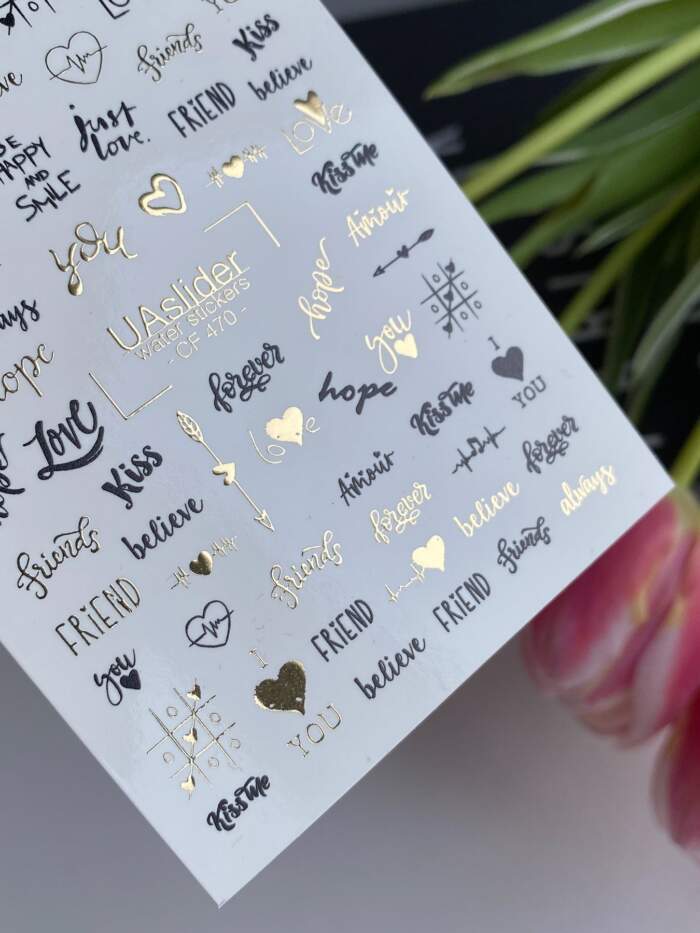 Friends
Kiss
FRIEND
believe
just
love.
HAPPY
AND
SMILE
LOVE
Kiss Me
you
Amour
UAslider
water stickers
- CF 470 -
hope
you
hope
forever
hope
I
YOU
Love
love
Kiss Me
Kiss
Amour
forever
believe
forever
believe
always
Friends
Friends
Friends
FRIEND
FRIEND
FRIEND
you
believe
I
YOU
Kiss Me